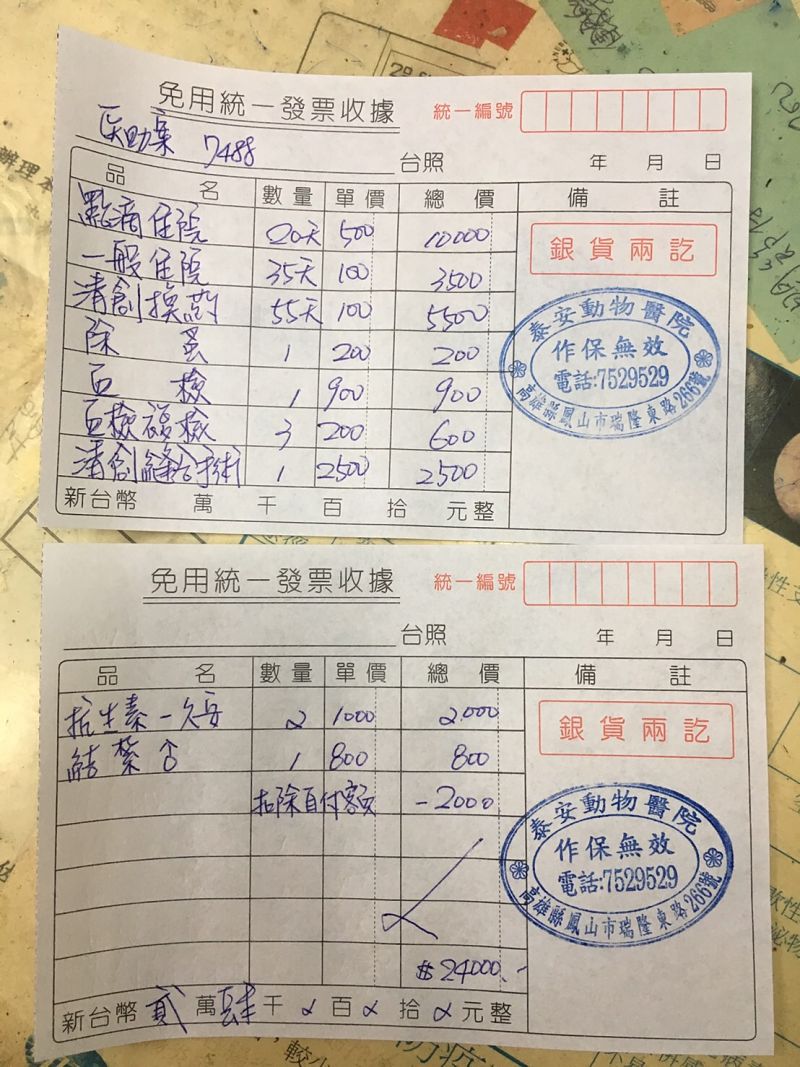 免用統一發票收據
統一編號
醫助案 7488 台照 年 月 日
品 名 數量 單價 總價 備註
點滴住院 20天 500 10000
銀貨兩訖
一般住院 35天 100 3500
清創換葯 55天 100 5500
除蚤 1 200 200
血檢 1 900 900
血檢複檢 3 200 600
清創縫合手術 1 2500 2500
泰安動物醫院
作保無效
電話:7529529
高雄縣鳳山市瑞隆東路266號
新台幣 萬 千 百 拾 元整
免用統一發票收據
統一編號
台照 年 月 日
品 名 數量 單價 總價 備註
抗生素一久安 2 1000 2000
銀貨兩訖
結紮♂ 1 800 800
扣除自付額 -2000
泰安動物醫院
作保無效
電話:7529529
高雄縣鳳山市瑞隆東路266號
$24000.-
新台幣 貳 萬 肆 千 百 拾 元整